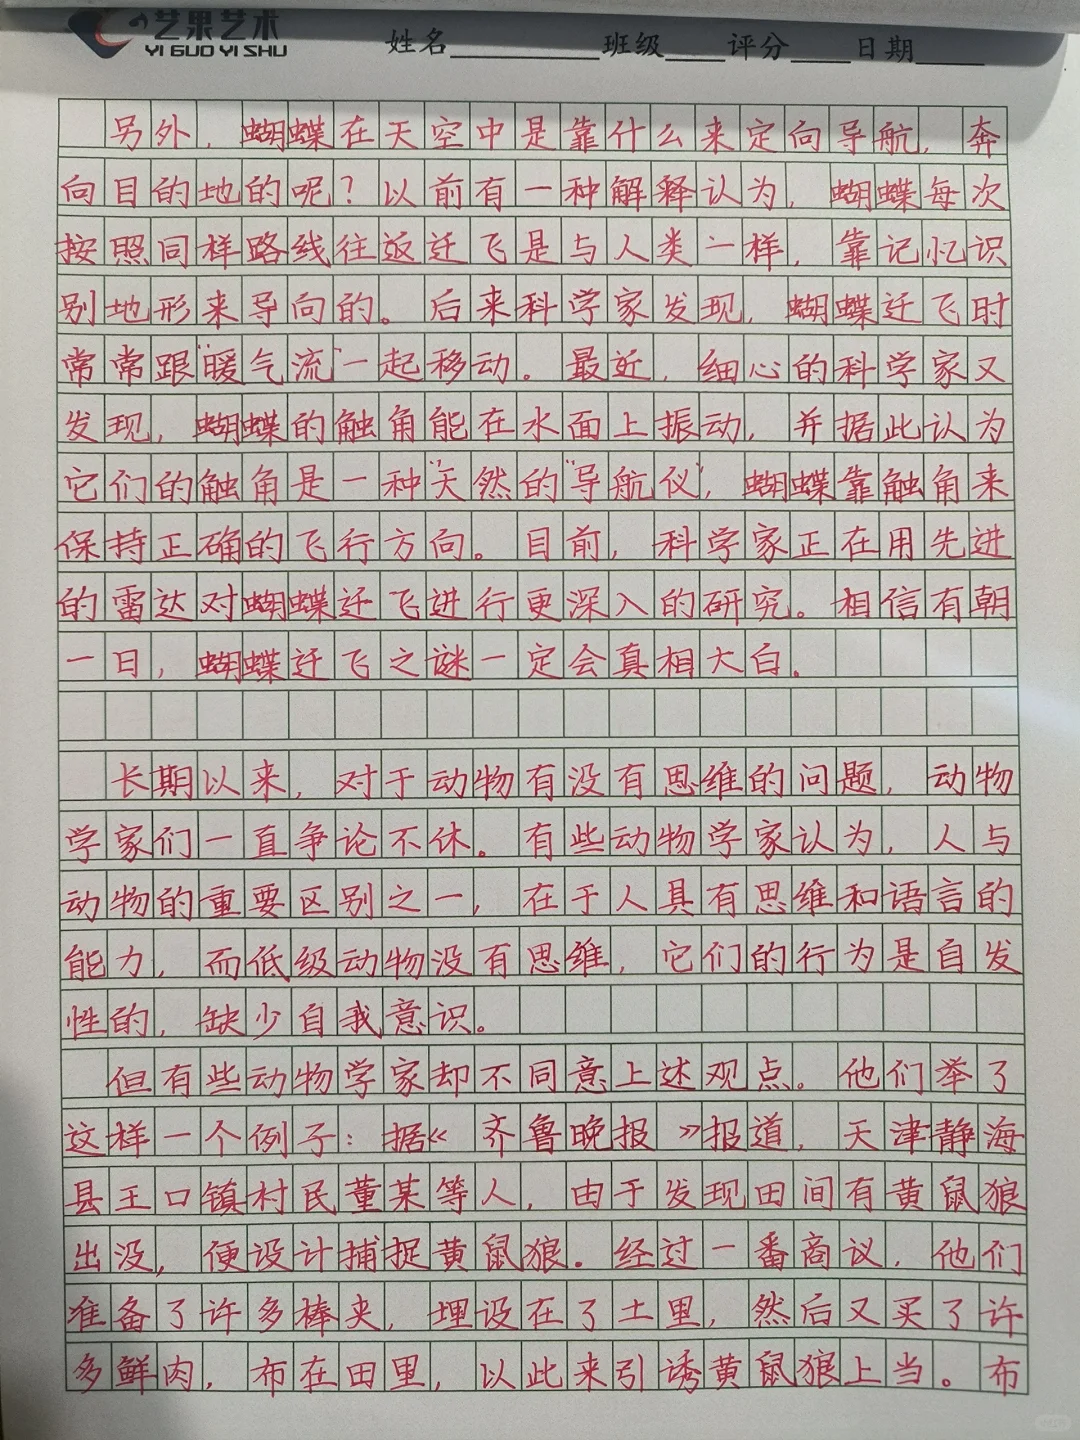 艺果艺术
YI GUO YI SHU
姓名 班级 评分 日期
另外，蝴蝶在天空中是靠什么来定向导航，奔
向目的地的呢？以前有一种解释认为，蝴蝶每次
按照同样路线往返迁飞是与人类一样，靠记忆识
别地形来导向的。后来科学家发现，蝴蝶迁飞时
常常跟“暖气流”一起移动。最近，细心的科学家又
发现，蝴蝶的触角能在水面上振动，并据此认为
它们的触角是一种“天然的“导航仪”，蝴蝶靠触角来
保持正确的飞行方向。目前，科学家正在用先进
的雷达对蝴蝶迁飞进行更深入的研究。相信有朝
一日，蝴蝶迁飞之谜一定会真相大白。
长期以来，对于动物有没有思维的问题，动物
学家们一直争论不休。有些动物学家认为，人与
动物的重要区别之一，在于人具有思维和语言的
能力，而低级动物没有思维，它们的行为是自发
性的，缺少自我意识。
但有些动物学家却不同意上述观点。他们举了
这样一个例子：据《齐鲁晚报》报道，天津静海
县王口镇村民董某等人，由于发现田间有黄鼠狼
出没，便设计捕捉黄鼠狼。经过一番商议，他们
准备了许多棒夹，埋设在了土里，然后又买了许
多鲜肉，布在田里，以此来引诱黄鼠狼上当。布